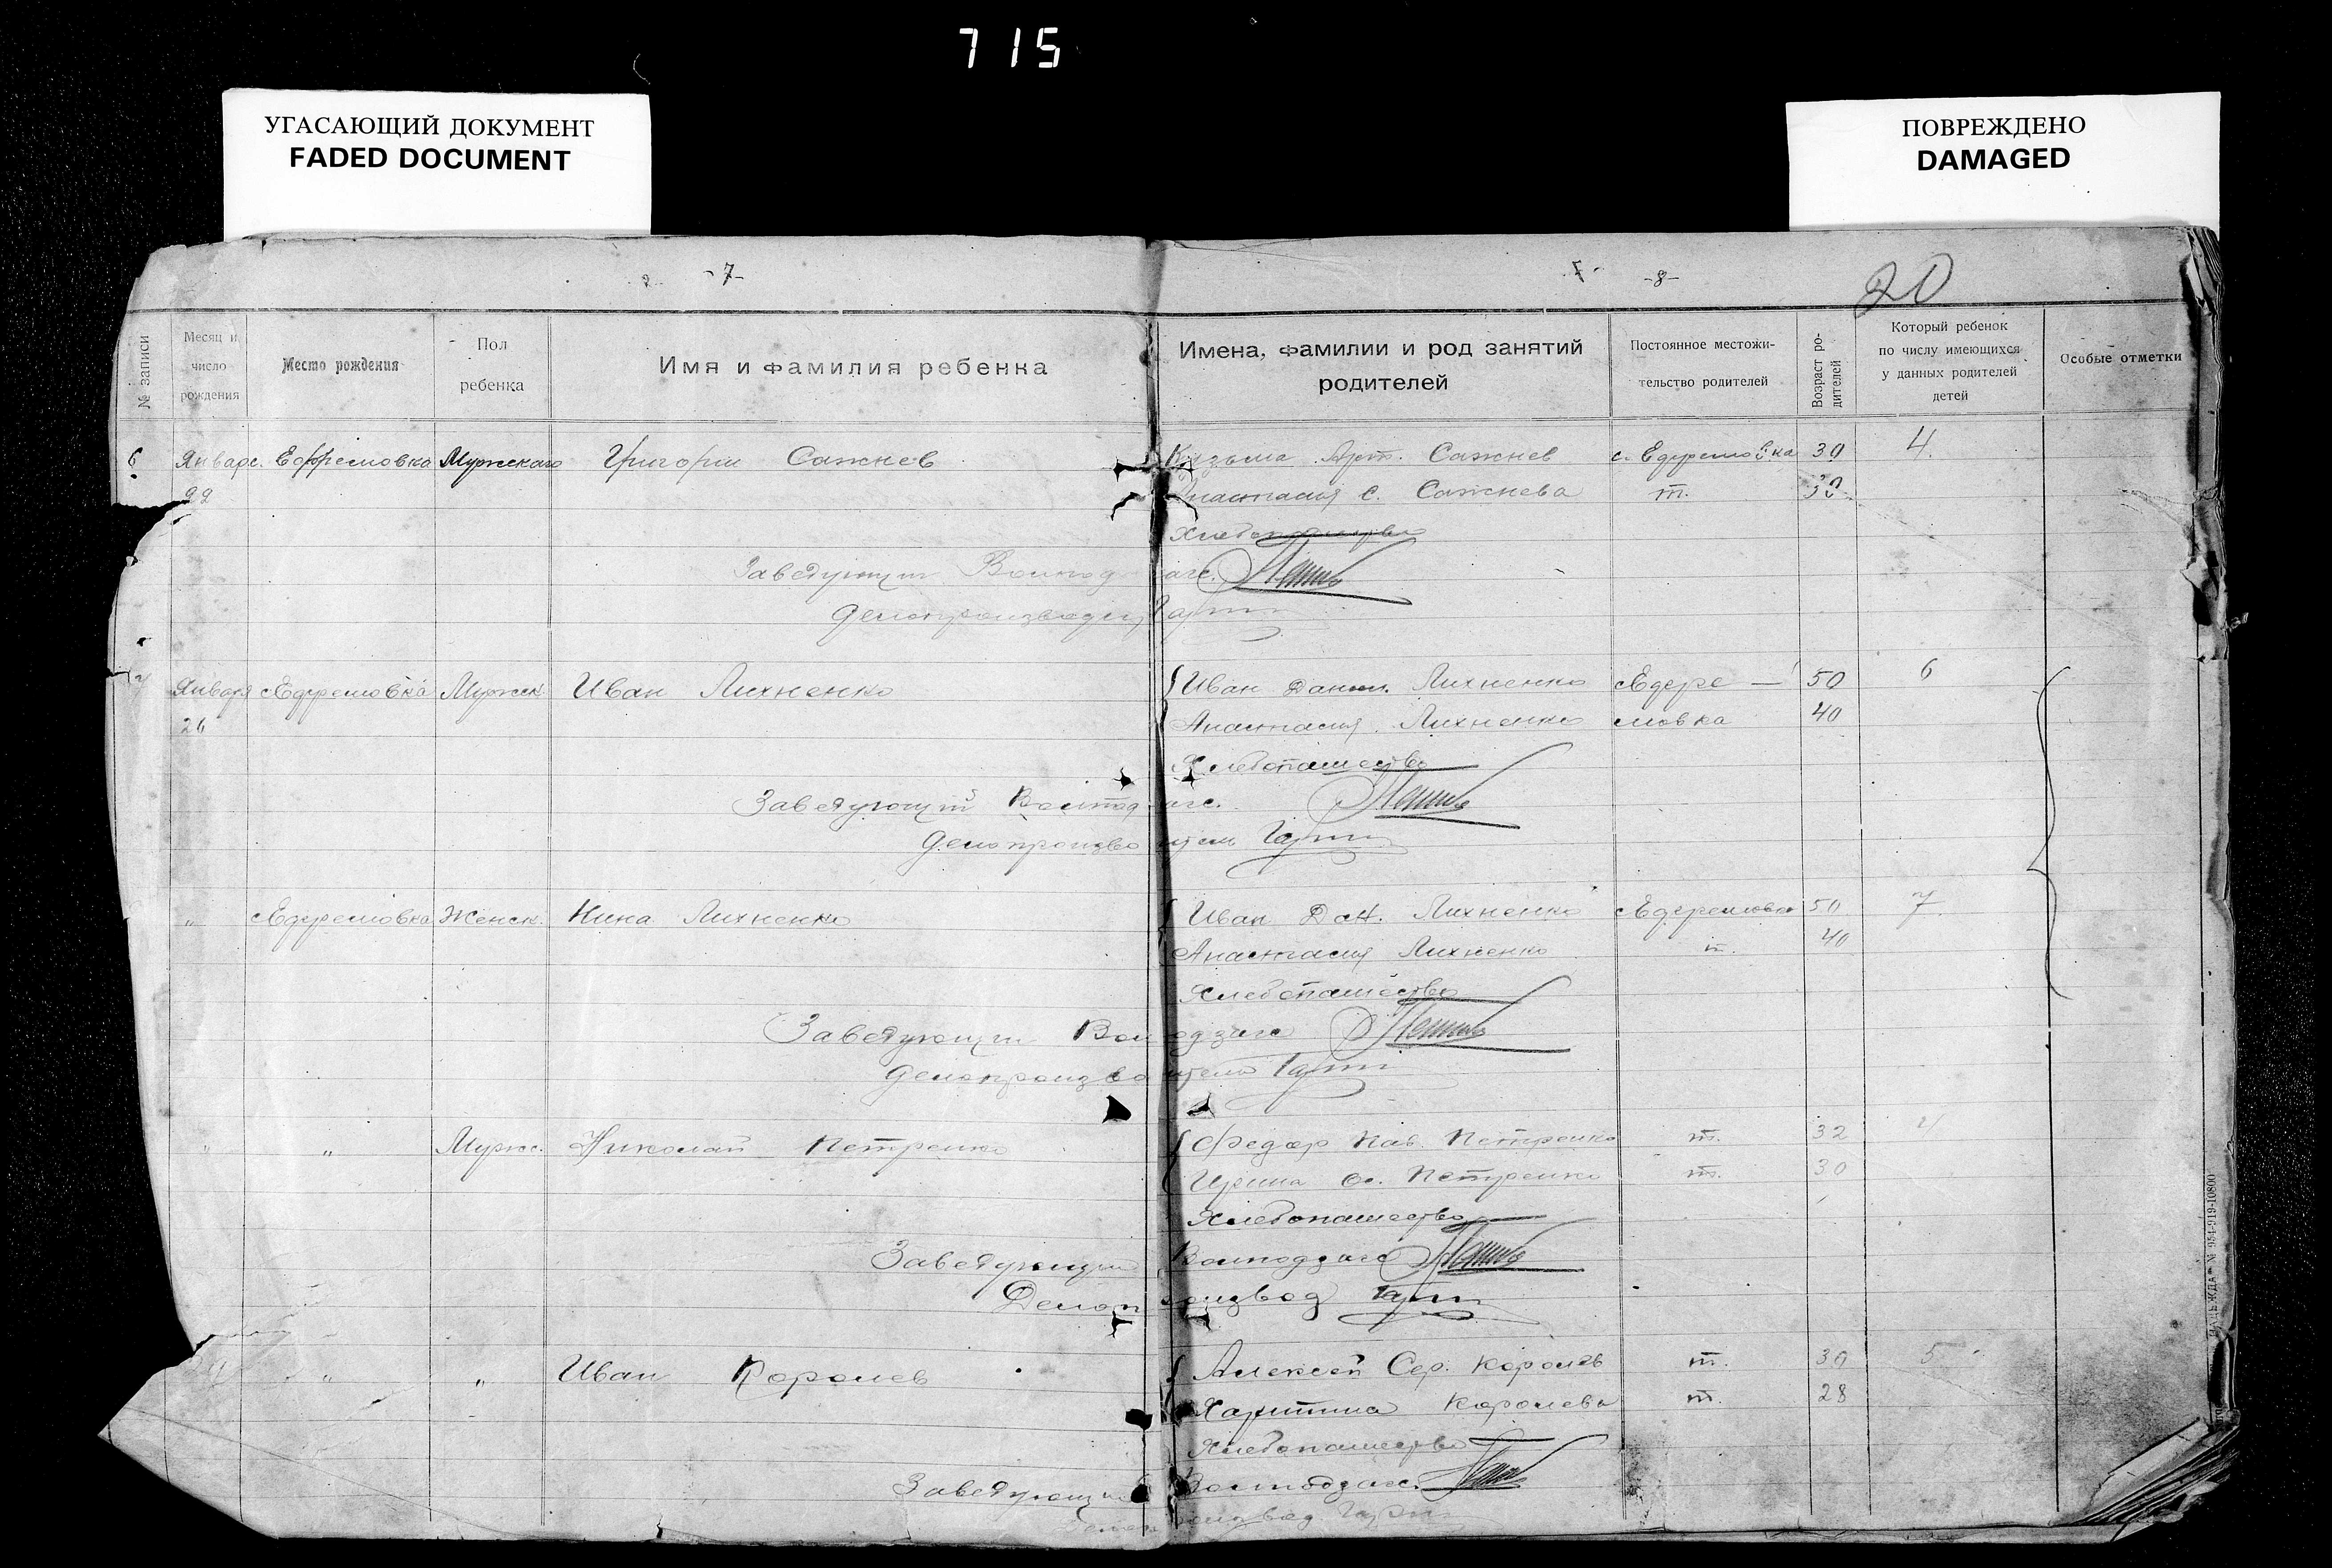 715
УГАСАЮЩИЙ ДОКУМЕНТ
FADED DOCUMENT
ПОВРЕЖДЕНО
DAMAGED
-7-
-8-
20
№ записи
Месяц и число рождения
Место рождения
Пол ребенка
Имя и фамилия ребенка
Имена, фамилии и род занятий родителей
Постоянное местожительство родителей
Возраст родителей
Который ребенок по числу имеющихся у данных родителей детей
Особые отметки
6 Январ с. Ефремовка Мужскаго Григории Сажнев Кузьма Арт. Сажнев с. Ефремовка 30 4.
22 Анастасия С. Сажнева т. 30
Хлебопашество
Заведующий Волпод
Делопроизводит
7 Января с Ефремовка Мужск Иван Лихненко Иван Данил. Лихненко с Ефре— 50 6
26 Анастасия Лихненко мовка 40
Хлебопашество
Заведующий Волпод
Делопроизводитель
„ с Ефремовка Женск. Нина Лихненко Иван Дан. Лихненко с Ефремовка 50 7
Анастасия Лихненко т. 40
Хлебопашество
Заведующий Волподзагс
Делопроизводитель
„ „ Мужс. Николай Петренко Федор Пав. Петренко т. 32 4
Ирина Петренко т. 30
Хлебопашество
Заведующий Волподзагс
Делопроизвод
„ „ Иван Королев Алексей Сер. Королев т. 30 5
Харитина Королева т. 28
Хлебопашество
Заведующий Волподзагс.
Делопроизвод